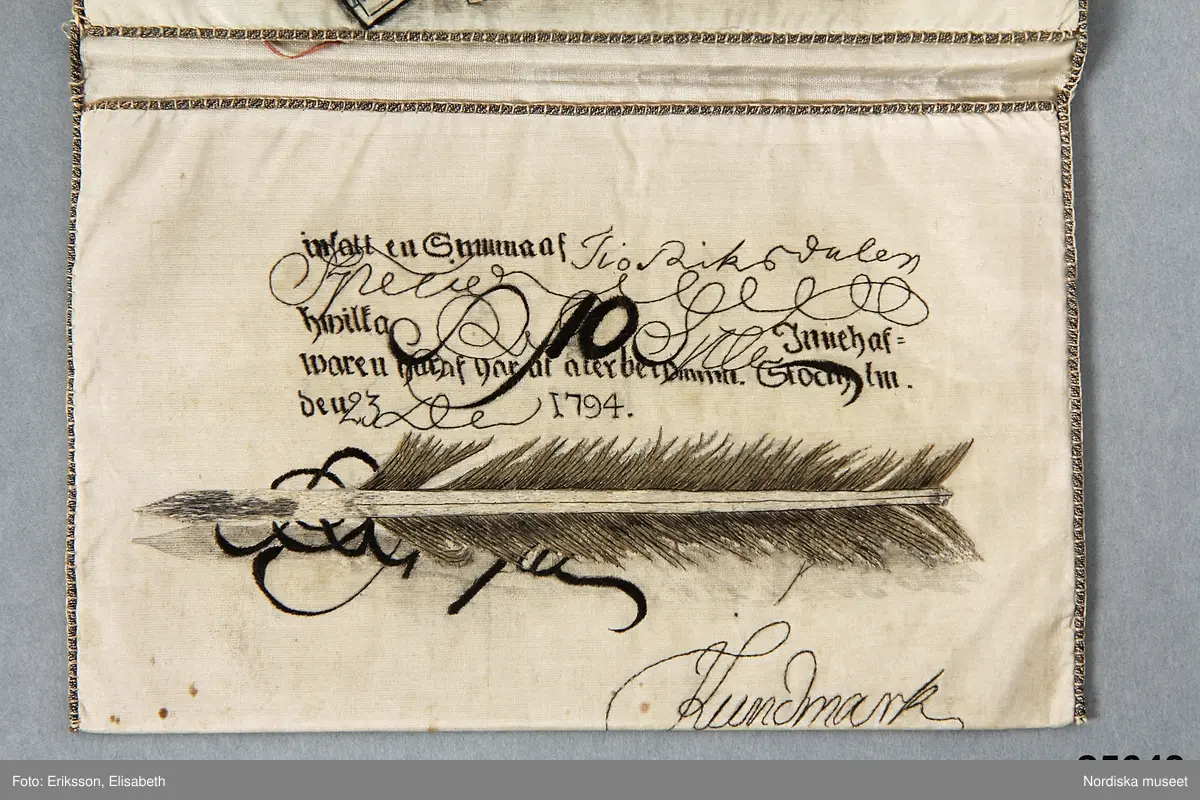 insatt en Summa af Tio Riksdaler
Specie
hwilka Rd 10 Spe Innehaf=
waren häraf har at återbekomma. Stockholm.
den 23 De 1794.
Kundmark
Foto: Eriksson, Elisabeth
Nordiska museet